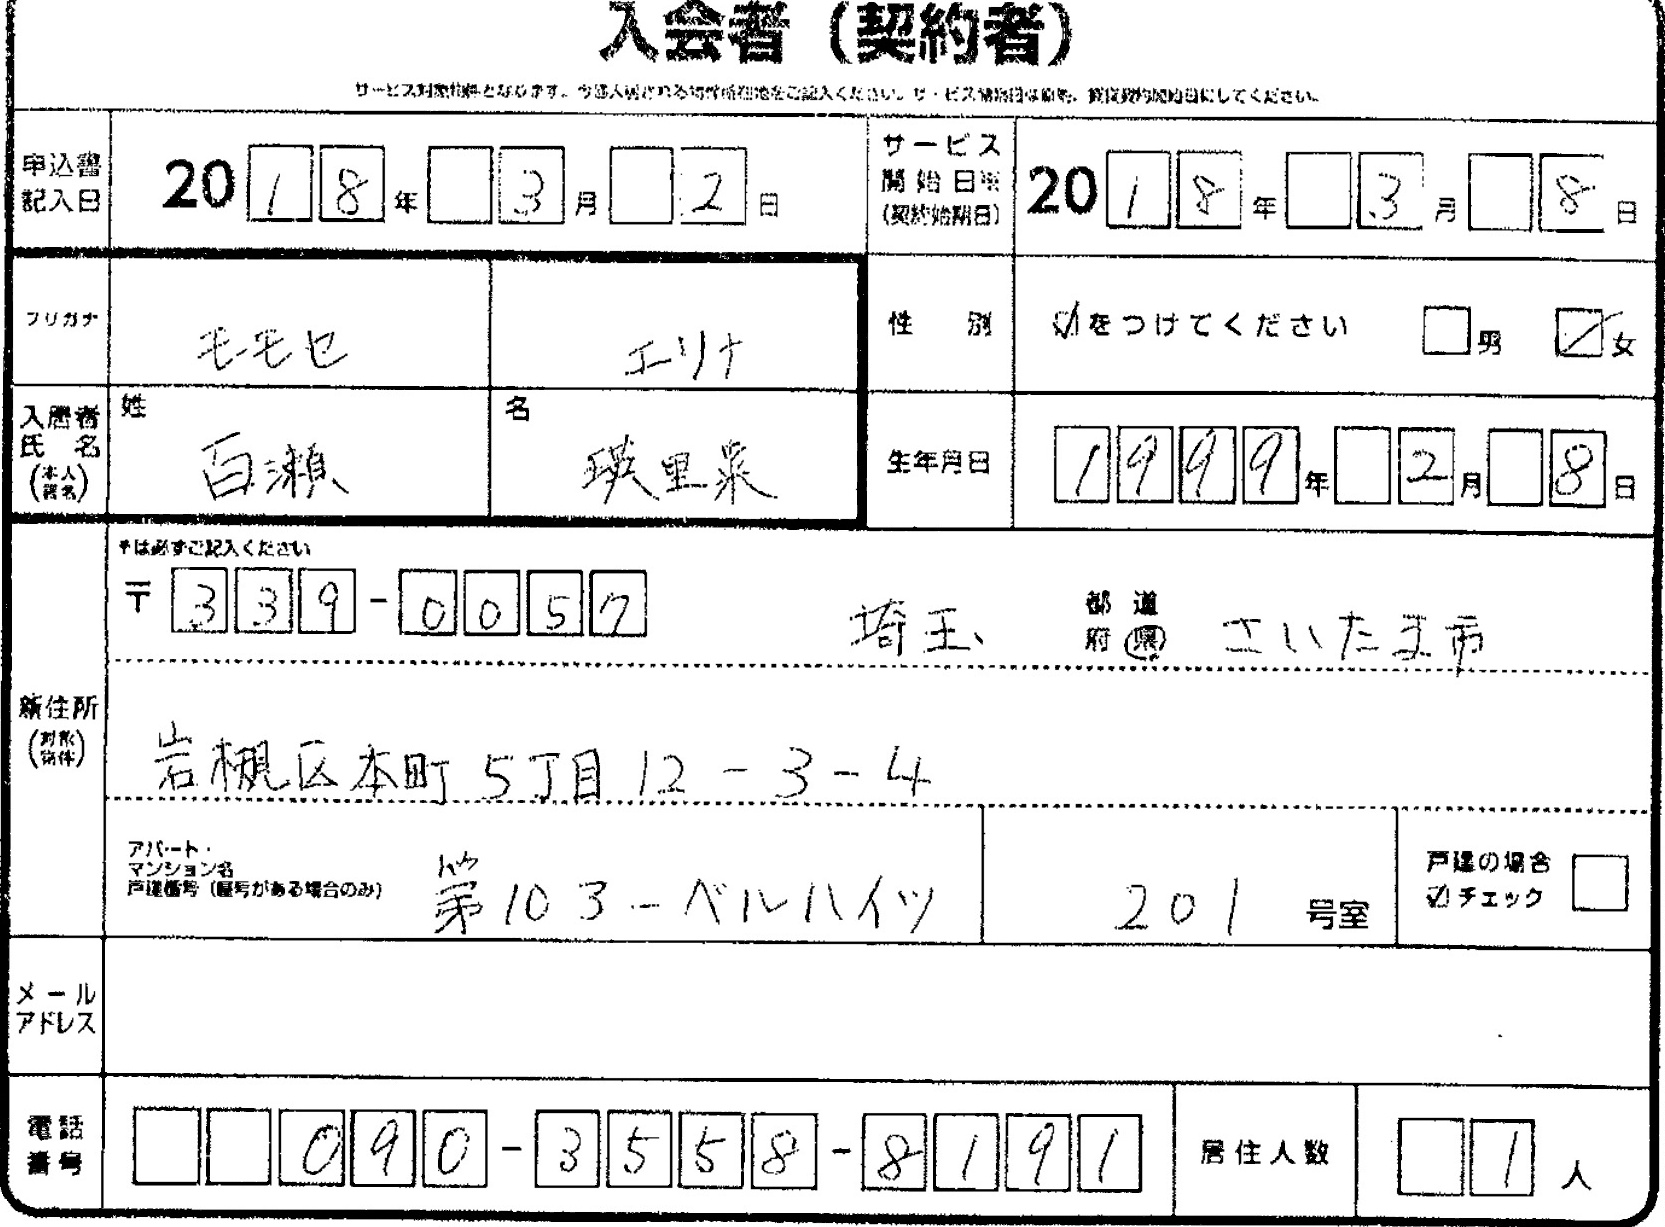 入会者（契約者）
サービス対象物件となります。今回入居される物件所在地をご記入ください。サービス開始日は原則、賃貸契約開始日にしてください。
申込書記入日 2018年 3月 2日 サービス開始日※(契約始期日) 2018年 3月 8日
フリガナ モモセ エリナ 性別 ☑をつけてください □男 ☑女
入居者氏名(本人署名) 姓 百瀬 名 瑛里菜 生年月日 1999年 2月 8日
〒は必ずご記入ください
〒339-0057 埼玉 都道府県 さいたま市
新住所(対象物件)
岩槻区本町5丁目12-3-4
アパート・マンション名 戸建番号（屋号がある場合のみ） 第103-ベルハイツ 201号室 戸建の場合☑チェック □
メールアドレス
電話番号 090-3558-8191 居住人数 1人